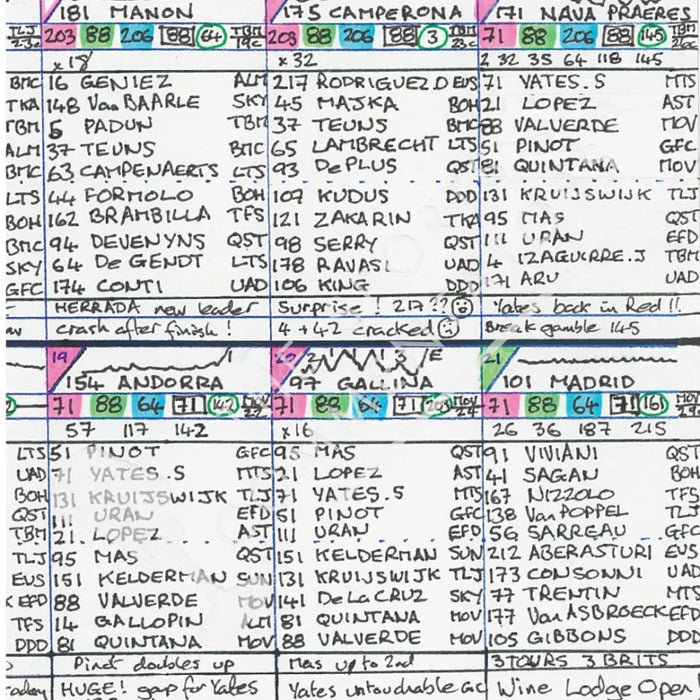 181 MANON
203 88 206 88 64 TBM 19c
x 18
16 GENIEZ ALM
148 Van BAARLE SKY
5 PADUN TBM
37 TEUNS BMC
63 CAMPENAERTS LTS
44 FORMOLO BOH
162 BRAMBILLA TFS
94 DEVENYNS QST
64 De GENDT LTS
174 CONTI UAD
HERRADA new leader
crash after finish !
175 CAMPERONA
203 88 206 88 3 TBM 23c
x 32
217 RODRIGUEZ.O EUS
45 MAJKA BOH
37 TEUNS BMC
65 LAMBRECHT LTS
93 De PLUS QST
109 KUDUS DDD
121 ZAKARIN TKA
98 SERRY QST
178 RAVASI UAD
106 KING DDD
Surprise ! 217 ??
4 + 42 cracked
171 NAVA PRAERES
71 88 206 88 145 TBM
2 32 35 64 118 145
71 YATES.S MTS
21 LOPEZ AST
88 VALVERDE MOV
51 PINOT GFC
81 QUINTANA MOV
131 KRUIJSWIJK TLJ
95 MAS QST
111 URAN EFD
4 IZAGUIRRE.J TBM
171 ARU UAD
Yates back in Red !!
Break gamble 145
BMC
TKA
TBM
ALM
BMC
LTS
BOH
BMC
SKY
GFC
19
154 ANDORRA
71 88 64 71 142 MOV
57 117 142
51 PINOT GFC
71 YATES.S MTS
131 KRUIJSWIJK TLJ
111 URAN EFD
21 LOPEZ AST
95 MAS QST
151 KELDERMAN SUN
88 VALVERDE MOV
14 GALLOPIN ALM
81 QUINTANA MOV
Pinot doubles up
HUGE! gap for Yates
20 2 1 1 1 3 E
97 GALLINA
71 88 64 71 203 MOV
x 16
95 MAS QST
21 LOPEZ AST
71 YATES.S MTS
51 PINOT GFC
111 URAN EFD
151 KELDERMAN SUN
131 KRUIJSWIJK TLJ
141 De La CRUZ SKY
81 QUINTANA MOV
88 VALVERDE MOV
Mas up to 2nd
Yates untouchable GC
21
101 MADRID
71 88 64 71 161 MOV
26 36 187 215
91 VIVIANI QST
41 SAGAN BOH
167 NIZZOLO TFS
138 Van POPPEL TLJ
56 SARREAU GFC
212 ABERASTURI EUS
173 CONSONNI UAD
77 TRENTIN MTS
177 Van ASBROECK EFD
105 GIBBONS DDD
3 TOURS 3 BRITS
Wine Lodge Open
LTS
UAD
BOH
QST
TBM
TLJ
EUS
EFD
TFS
DDD